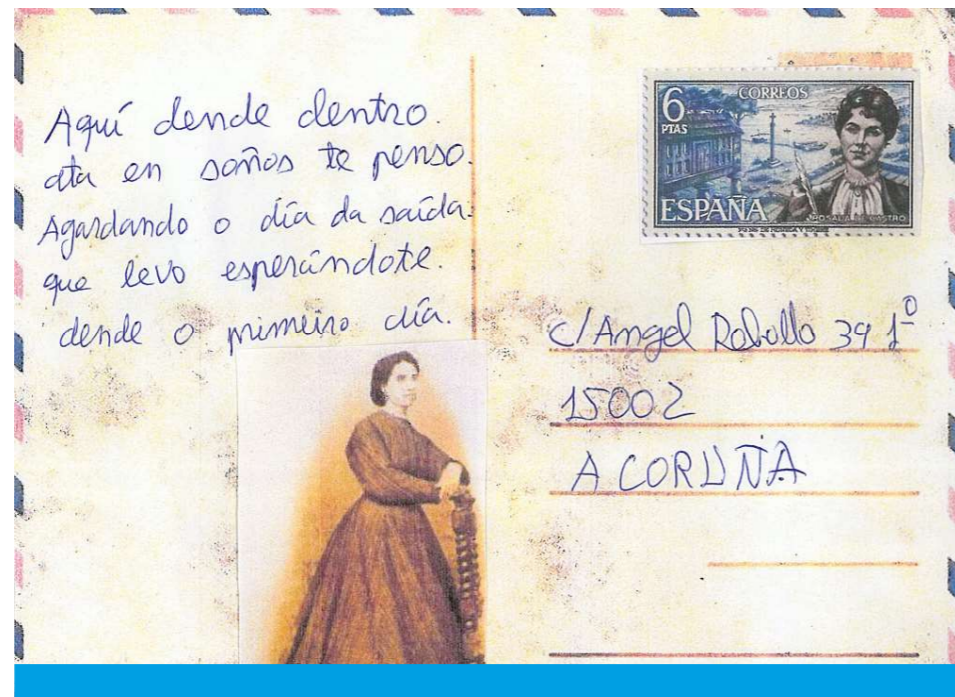 Aquí dende dentro.
ata en soños te penso.
Agardando o día da saída.
que levo esperándote.
dende o primeiro día.
6
PTAS
CORREOS
ESPAÑA
ROSALIA DE CASTRO
C/Angel Rebollo 39 1º
15002
A CORUÑA